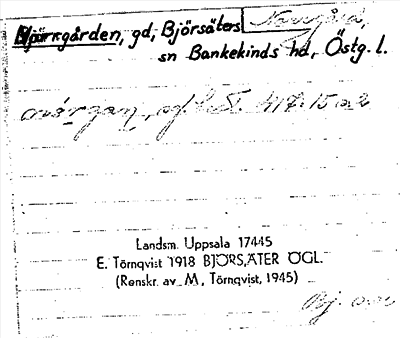 Norrgård,
Norrgården, gd, Björsäters
sn Bankekinds hd, Östg. l.
417.15
Landsm. Uppsala 17445
E. Törnqvist 1918 BJÖRSÄTER ÖGL.
(Renskr. av M. Törnqvist, 1945)
Bj.